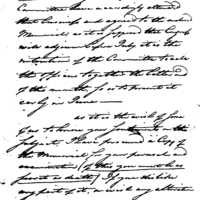 Committee have accordingly attended
that business and agreed to the enclosed
Memorial, as it is supposed the Congress
will adjourn before July it is the
intention of the Committee to call
the officers together the latter end
of the month for to present it
early in June —
as it is the wish of some
Gen to know your sentiments on the
subject. I have procured a Copy of
the Memorial for your perusal and
of this you must be as
private as death, If you dislike
any part of it, or wish any alteration